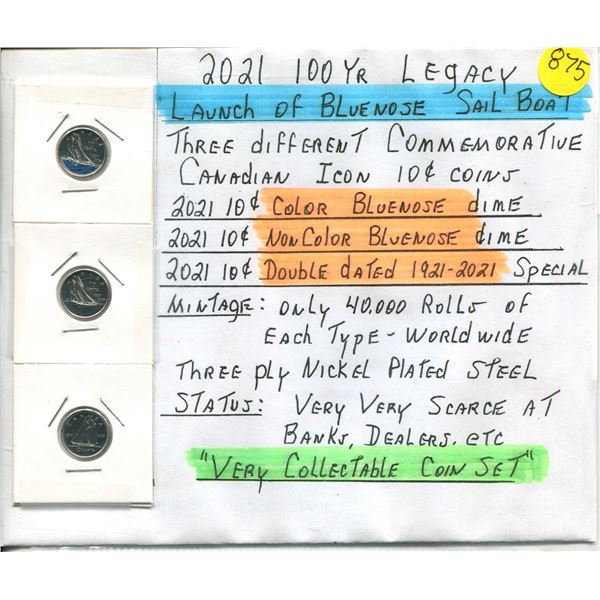 2021 100 Yr Legacy
875
Launch of Bluenose Sail Boat
Three different Commemorative
Canadian Icon 10¢ coins
2021 10¢ Color Bluenose dime
2021 10¢ NonColor Bluenose dime
2021 10¢ Double dated 1921-2021 Special
Mintage: only 40.000 Rolls of
Each Type - Worldwide
Three ply Nickel Plated Steel
Status: Very Very Scarce at
Banks, Dealers, etc
"Very Collectable Coin Set"